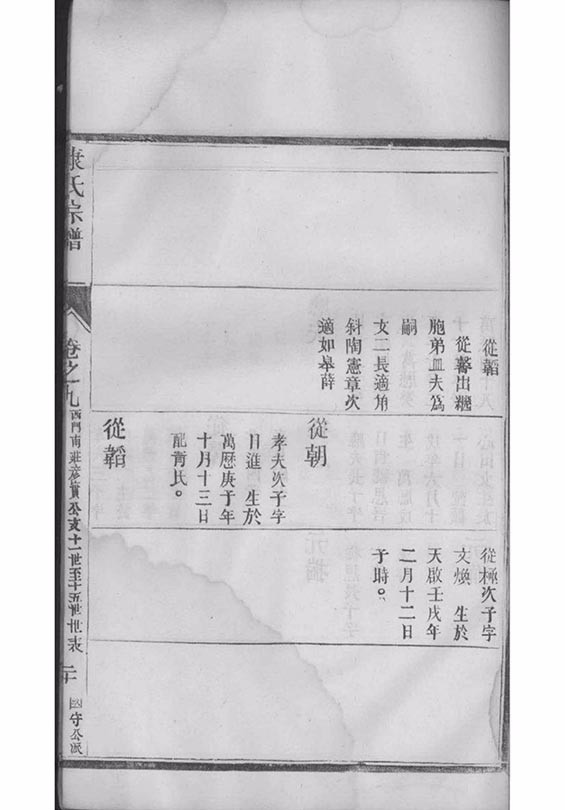 從韜
從馨出繼
胞弟皿夫爲
嗣
女二長適角
斜陶憲章次
適如皋薛
從朝
孝夫次子字
日進 生於
萬厯庚子年
十月十三日
配青氏。
從韜
從極次子字
文煥 生於
天啟壬戌年
二月十二日
子時。
康氏宗譜
卷之九
西門南莊彥實公支十一世至十五世世表
二十
守公派